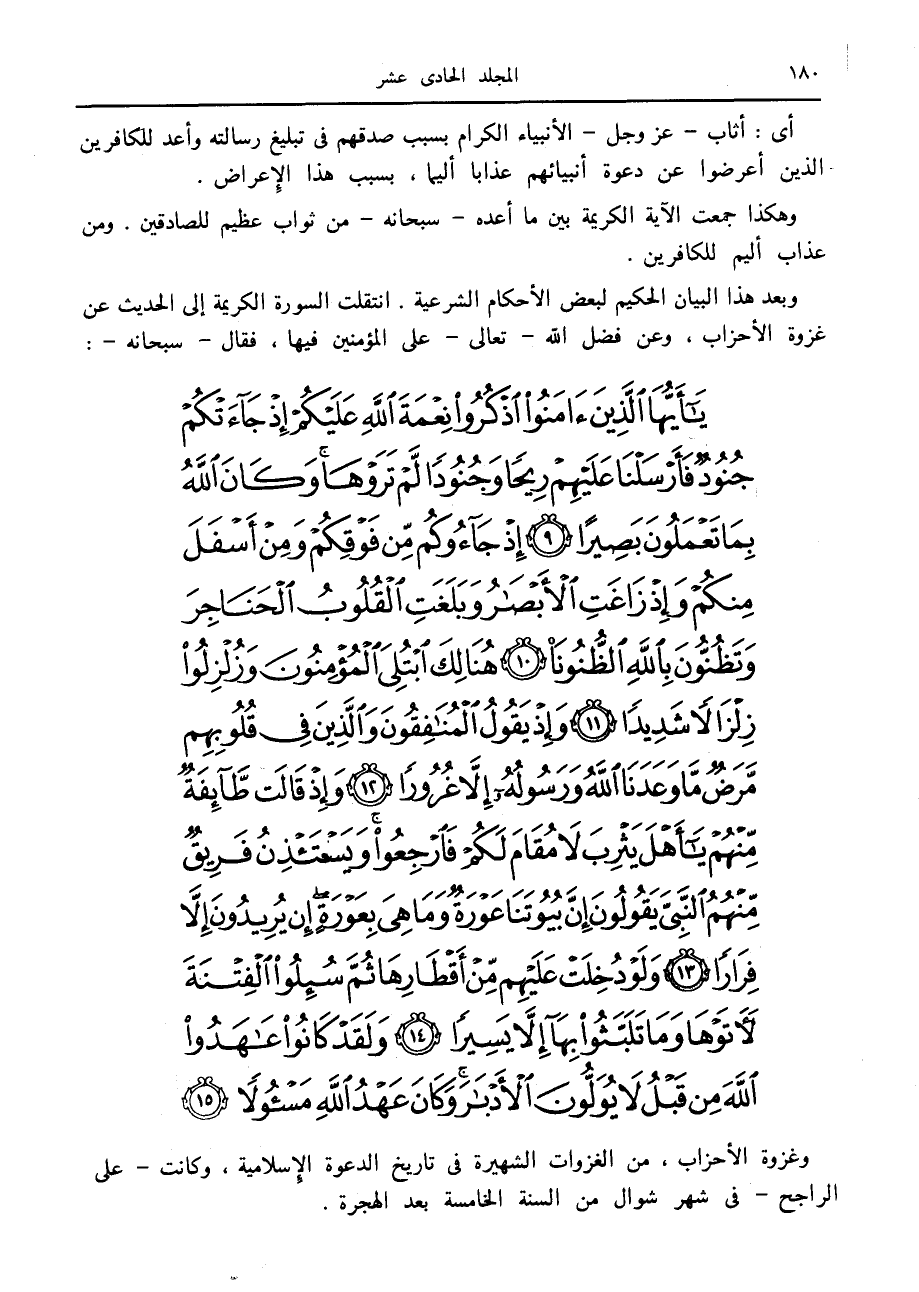 ١٨٠
المجلد الحادى عشر
أى : أثاب – عز وجل – الأنبياء الكرام بسبب صدقهم فى تبليغ رسالته وأعد للكافرين
الذين أعرضوا عن دعوة أنبيائهم عذابا أليما ، بسبب هذا الإعراض .
وهكذا جمعت الآية الكريمة بين ما أعده – سبحانه – من ثواب عظيم للصادقين . ومن
عذاب أليم للكافرين .
وبعد هذا البيان الحكيم لبعض الأحكام الشرعية . انتقلت السورة الكريمة إلى الحديث عن
غزوة الأحزاب ، وعن فضل الله – تعالى – على المؤمنين فيها ، فقال – سبحانه – :
يَٰٓأَيُّهَا ٱلَّذِينَ ءَامَنُوا۟ ٱذْكُرُوا۟ نِعْمَةَ ٱللَّهِ عَلَيْكُمْ إِذْ جَآءَتْكُمْ
جُنُودٌ فَأَرْسَلْنَا عَلَيْهِمْ رِيحًا وَجُنُودًا لَّمْ تَرَوْهَا ۚ وَكَانَ ٱللَّهُ
بِمَا تَعْمَلُونَ بَصِيرًا ٩ إِذْ جَآءُوكُم مِّن فَوْقِكُمْ وَمِنْ أَسْفَلَ
مِنكُمْ وَإِذْ زَاغَتِ ٱلْأَبْصَٰرُ وَبَلَغَتِ ٱلْقُلُوبُ ٱلْحَنَاجِرَ
وَتَظُنُّونَ بِٱللَّهِ ٱلظُّنُونَا۠ ١٠ هُنَالِكَ ٱبْتُلِىَ ٱلْمُؤْمِنُونَ وَزُلْزِلُوا۟
زِلْزَالًا شَدِيدًا ١١ وَإِذْ يَقُولُ ٱلْمُنَٰفِقُونَ وَٱلَّذِينَ فِى قُلُوبِهِم
مَّرَضٌ مَّا وَعَدَنَا ٱللَّهُ وَرَسُولُهُۥٓ إِلَّا غُرُورًا ١٢ وَإِذْ قَالَت طَّآئِفَةٌ
مِّنْهُمْ يَٰٓأَهْلَ يَثْرِبَ لَا مُقَامَ لَكُمْ فَٱرْجِعُوا۟ ۚ وَيَسْتَـْٔذِنُ فَرِيقٌ
مِّنْهُمُ ٱلنَّبِىَّ يَقُولُونَ إِنَّ بُيُوتَنَا عَوْرَةٌ وَمَا هِىَ بِعَوْرَةٍ ۖ إِن يُرِيدُونَ إِلَّا
فِرَارًا ١٣ وَلَوْ دُخِلَتْ عَلَيْهِم مِّنْ أَقْطَارِهَا ثُمَّ سُئِلُوا۟ ٱلْفِتْنَةَ
لَءَاتَوْهَا وَمَا تَلَبَّثُوا۟ بِهَآ إِلَّا يَسِيرًا ١٤ وَلَقَدْ كَانُوا۟ عَٰهَدُوا۟
ٱللَّهَ مِن قَبْلُ لَا يُوَلُّونَ ٱلْأَدْبَٰرَ ۚ وَكَانَ عَهْدُ ٱللَّهِ مَسْـُٔولًا ١٥
وغزوة الأحزاب ، من الغزوات الشهيرة فى تاريخ الدعوة الإسلامية ، وكانت – على
الراجح – فى شهر شوال من السنة الخامسة بعد الهجرة .